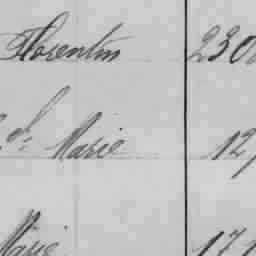 Florentin 230
d: Marie 12
Marie 171